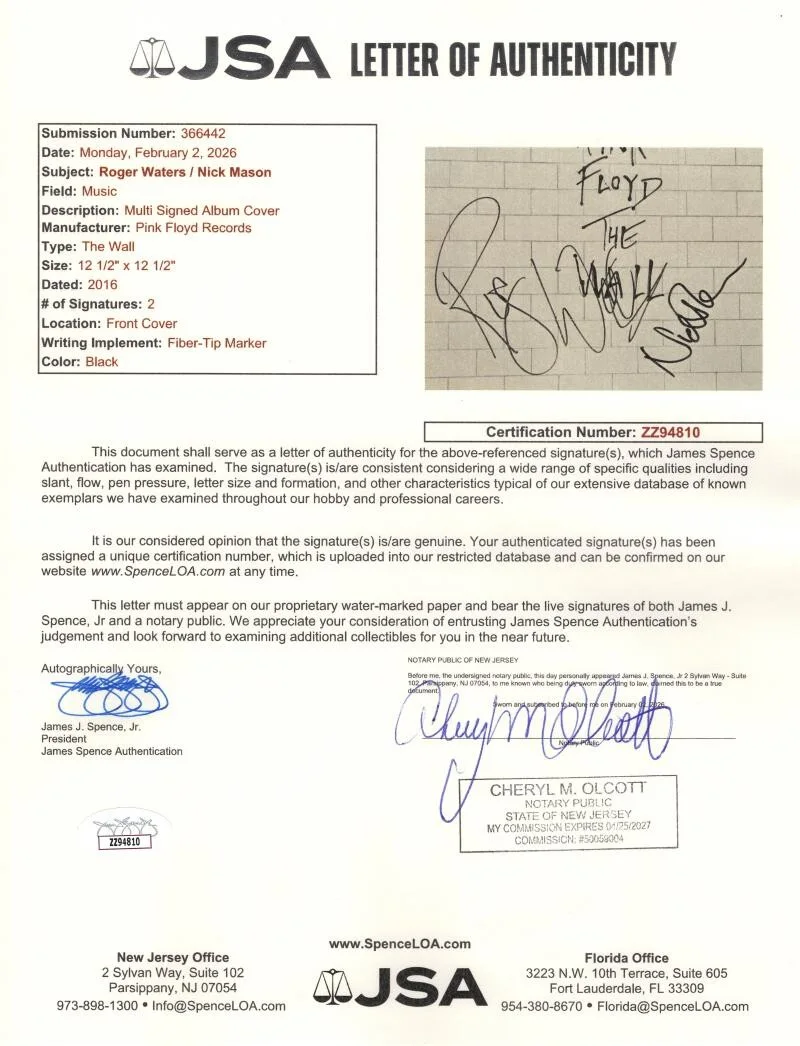 JSA LETTER OF AUTHENTICITY
Submission Number: 366442
Date: Monday, February 2, 2026
Subject: Roger Waters / Nick Mason
Field: Music
Description: Multi Signed Album Cover
Manufacturer: Pink Floyd Records
Type: The Wall
Size: 12 1/2" x 12 1/2"
Dated: 2016
# of Signatures: 2
Location: Front Cover
Writing Implement: Fiber-Tip Marker
Color: Black
PINK
FLOYD
THE
WALL
Certification Number: ZZ94810
This document shall serve as a letter of authenticity for the above-referenced signature(s), which James Spence
Authentication has examined. The signature(s) is/are consistent considering a wide range of specific qualities including
slant, flow, pen pressure, letter size and formation, and other characteristics typical of our extensive database of known
exemplars we have examined throughout our hobby and professional careers.
It is our considered opinion that the signature(s) is/are genuine. Your authenticated signature(s) has been
assigned a unique certification number, which is uploaded into our restricted database and can be confirmed on our
website www.SpenceLOA.com at any time.
This letter must appear on our proprietary water-marked paper and bear the live signatures of both James J.
Spence, Jr and a notary public. We appreciate your consideration of entrusting James Spence Authentication's
judgement and look forward to examining additional collectibles for you in the near future.
Autographically Yours,
James J. Spence, Jr.
President
James Spence Authentication
NOTARY PUBLIC OF NEW JERSEY
Before me, the undersigned notary public, this day personally appeared James J. Spence, Jr 2 Sylvan Way - Suite
102, Parsippany, NJ 07054, to me known who being duly sworn according to law, claimed this to be a true
document.
Sworn and subscribed to before me on February 02, 2026
Cheryl M Olcott
Notary Public
CHERYL M. OLCOTT
NOTARY PUBLIC
STATE OF NEW JERSEY
MY COMMISSION EXPIRES 01/25/2027
COMMISSION: #50059004
ZZ94810
www.SpenceLOA.com
New Jersey Office
2 Sylvan Way, Suite 102
Parsippany, NJ 07054
973-898-1300 • Info@SpenceLOA.com
JSA
Florida Office
3223 N.W. 10th Terrace, Suite 605
Fort Lauderdale, FL 33309
954-380-8670 • Florida@SpenceLOA.com